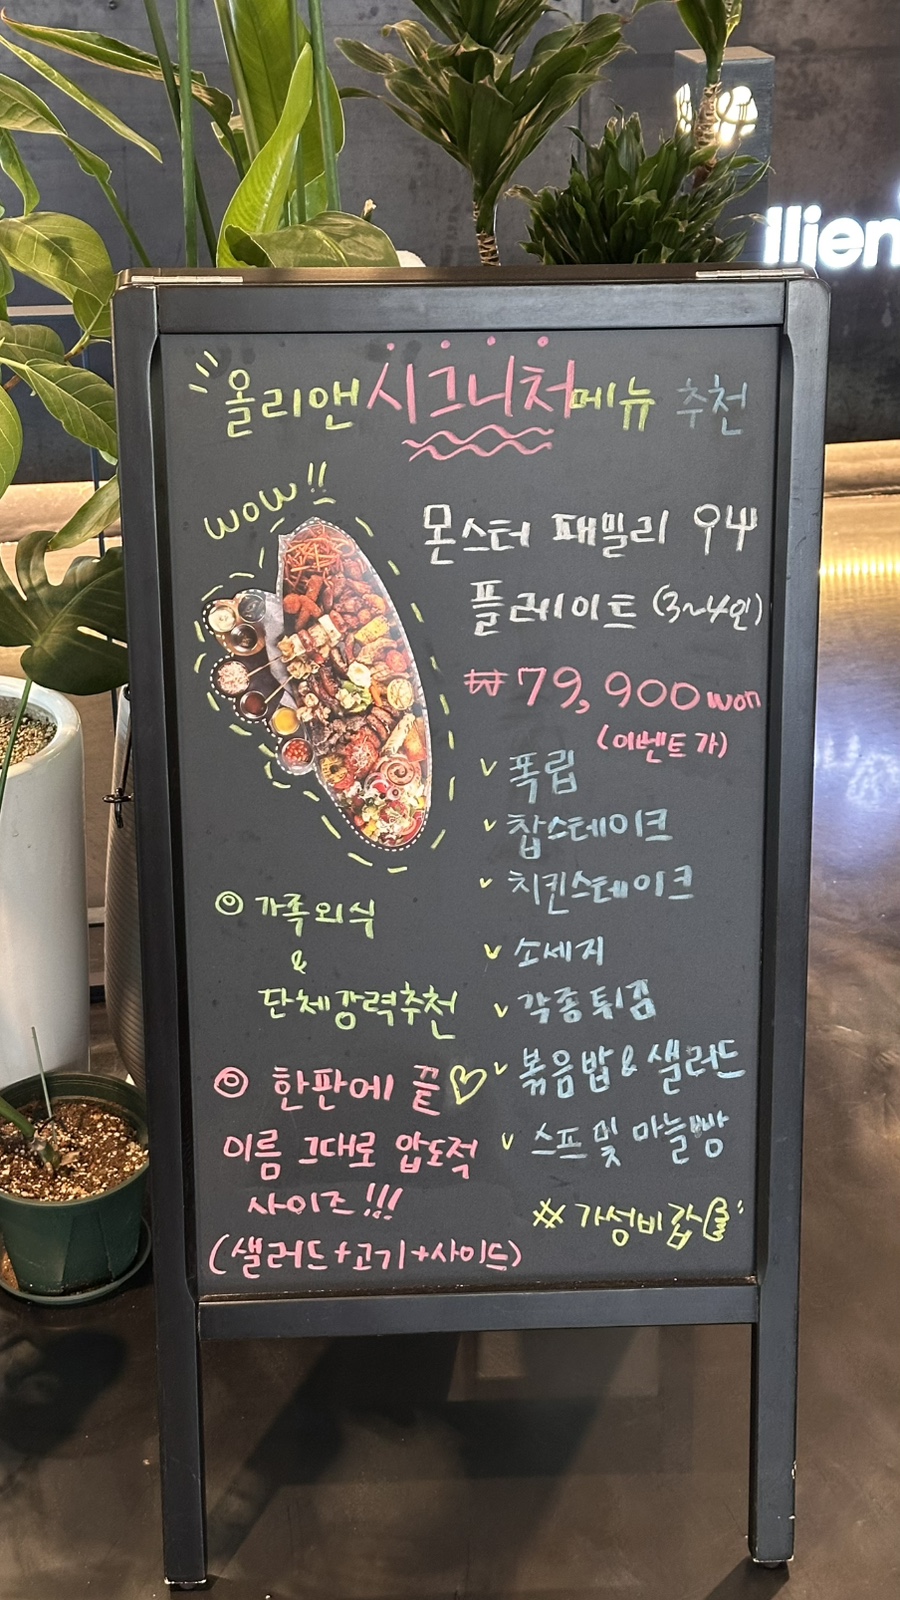 llien
올리앤 시그니처 메뉴 추천
wow!!
몬스터 패밀리 우버
플레이트 (3~4인)
₩79,900 won
(이벤트가)
폭립
찹스테이크
치킨스테이크
소세지
각종튀김
볶음밥 & 샐러드
스프 및 마늘빵
※ 가성비갑
◎ 가족외식
&
단체강력추천
◎ 한판에 끝♡
이름 그대로 압도적
사이즈!!!
(샐러드+고기+사이드)